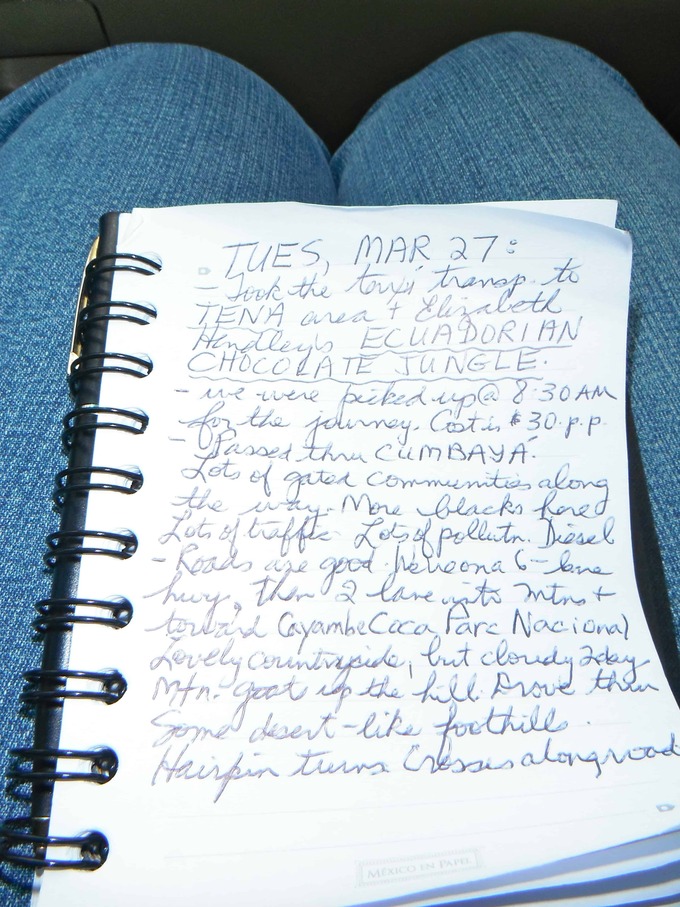 TUES, MAR 27:
- Took the taxi transp. to
TENA area + Elizabeth
Hendley's ECUADORIAN
CHOCOLATE JUNGLE.
- we were picked up @ 8:30 AM
for the journey. Cost is $30. p.p.
- Passed thru CUMBAYÁ.
Lots of gated communities along
the way. More blacks here
Lots of traffic Lots of pollutn. Diesel
- Roads are good. 6-lane
hwy, then 2 lane into mtns +
toward Cayambe Coca Parc Nacional
Lovely countryside, but cloudy 2day
Mtn. goats up the hill. Drove thru
Some desert-like foothills.
Hairpin turns Crosses along road
MÉXICO EN PAPEL